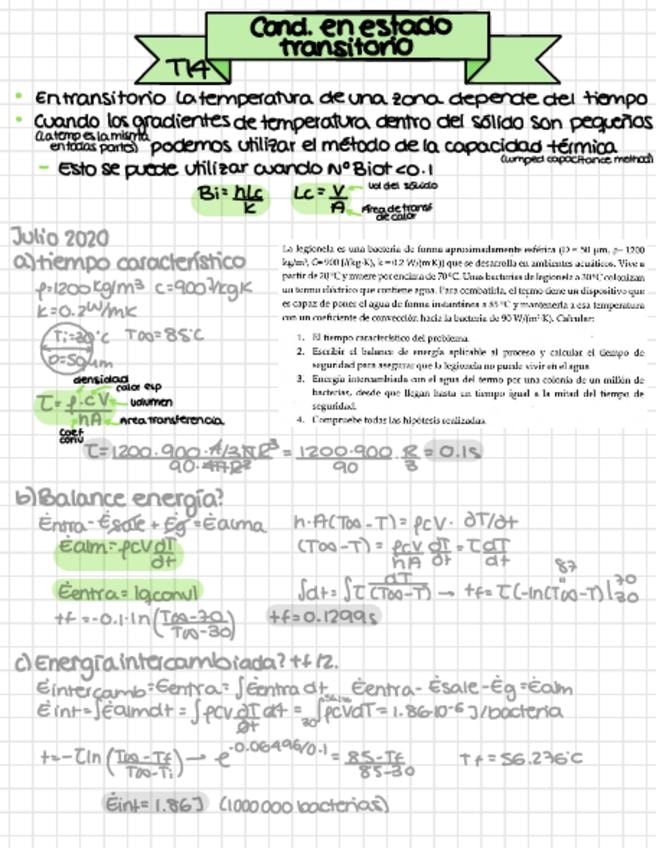 Cond. en estado
transitorio
T14
• En transitorio la temperatura de una zona depende del tiempo
• Cuando los gradientes de temperatura dentro del sólido son pequeños
(la temp es la misma
en todas partes) podemos utilizar el método de la capacidad térmica
(lumped capacitance method)
- Esto se puede utilizar cuando NºBiot<0.1
Bi = hLc/k Lc = V/A
vol del sólido
Área de transf
de calor
Julio 2020
a) tiempo característico
ρ=1200kg/m³ c=900J/kgK
k=0.2W/mK
Ti=30°C T∞=85°C
D=50μm
densidad
calor esp
τ = ρ·cV/hA
volumen
Área transferencia
coef
conv
τ = 1200·900·4/3πR³/90·4πR² = 1200·900/90 · R/3 = 0.1s
La legionela es una bacteria de forma aproximadamente esférica (D = 50 μm, ρ= 1200
kg/m³, C= 900 J/(kg·K), k = 0.2 W/(m·K)) que se desarrolla en ambientes acuáticos. Vive a
partir de 20 °C y muere por encima de 70°C. Unas bacterias de legionela a 30°C colonizan
un termo eléctrico que contiene agua. Para combatirla, el termo tiene un dispositivo que
es capaz de poner el agua de forma instantánea a 85 °C y mantenerla a esa temperatura
con un coeficiente de convección hacia la bacteria de 90 W/(m²·K). Calcular:
1. El tiempo característico del problema
2. Escribir el balance de energía aplicable al proceso y calcular el tiempo de
seguridad para asegurar que la legionela no puede vivir en el agua
3. Energía intercambiada con el agua del termo por una colonia de un millón de
bacterias, desde que llegan hasta un tiempo igual a la mitad del tiempo de
seguridad.
4. Compruebe todas las hipótesis realizadas
b) Balance energía?
Ėntra - Ėsale + Ėg = Ėalma h·A(T∞-T) = ρcV· ∂T/∂t
Ėalm = ρcV dT/dt (T∞-T) = ρcV/hA dT/dt = τ dT/dt
Ėentra = |q conv| ∫dt = ∫τ dT/(T∞-T) → tf = τ(-ln(T∞-T)|
tf = -0.1·ln(T∞-70/T∞-30) tf = 0.1299s
c) Energía intercambiada? tf/2.
Ėintercamb = Ėentra = ∫Ėentra dt Ėentra - Ėsale - Ėg = Ėalm
Ėint = ∫Ėalm dt = ∫ρcV ∂T/∂t dt = ∫ρcV dT = 1.86·10⁻⁶ J/bacteria
t = -τ ln(T∞-Tf/T∞-Ti) → e^-0.06496/0.1 = 85-Tf/85-30 Tf = 56.276°C
Ėint = 1.86J (1000000 bacterias)